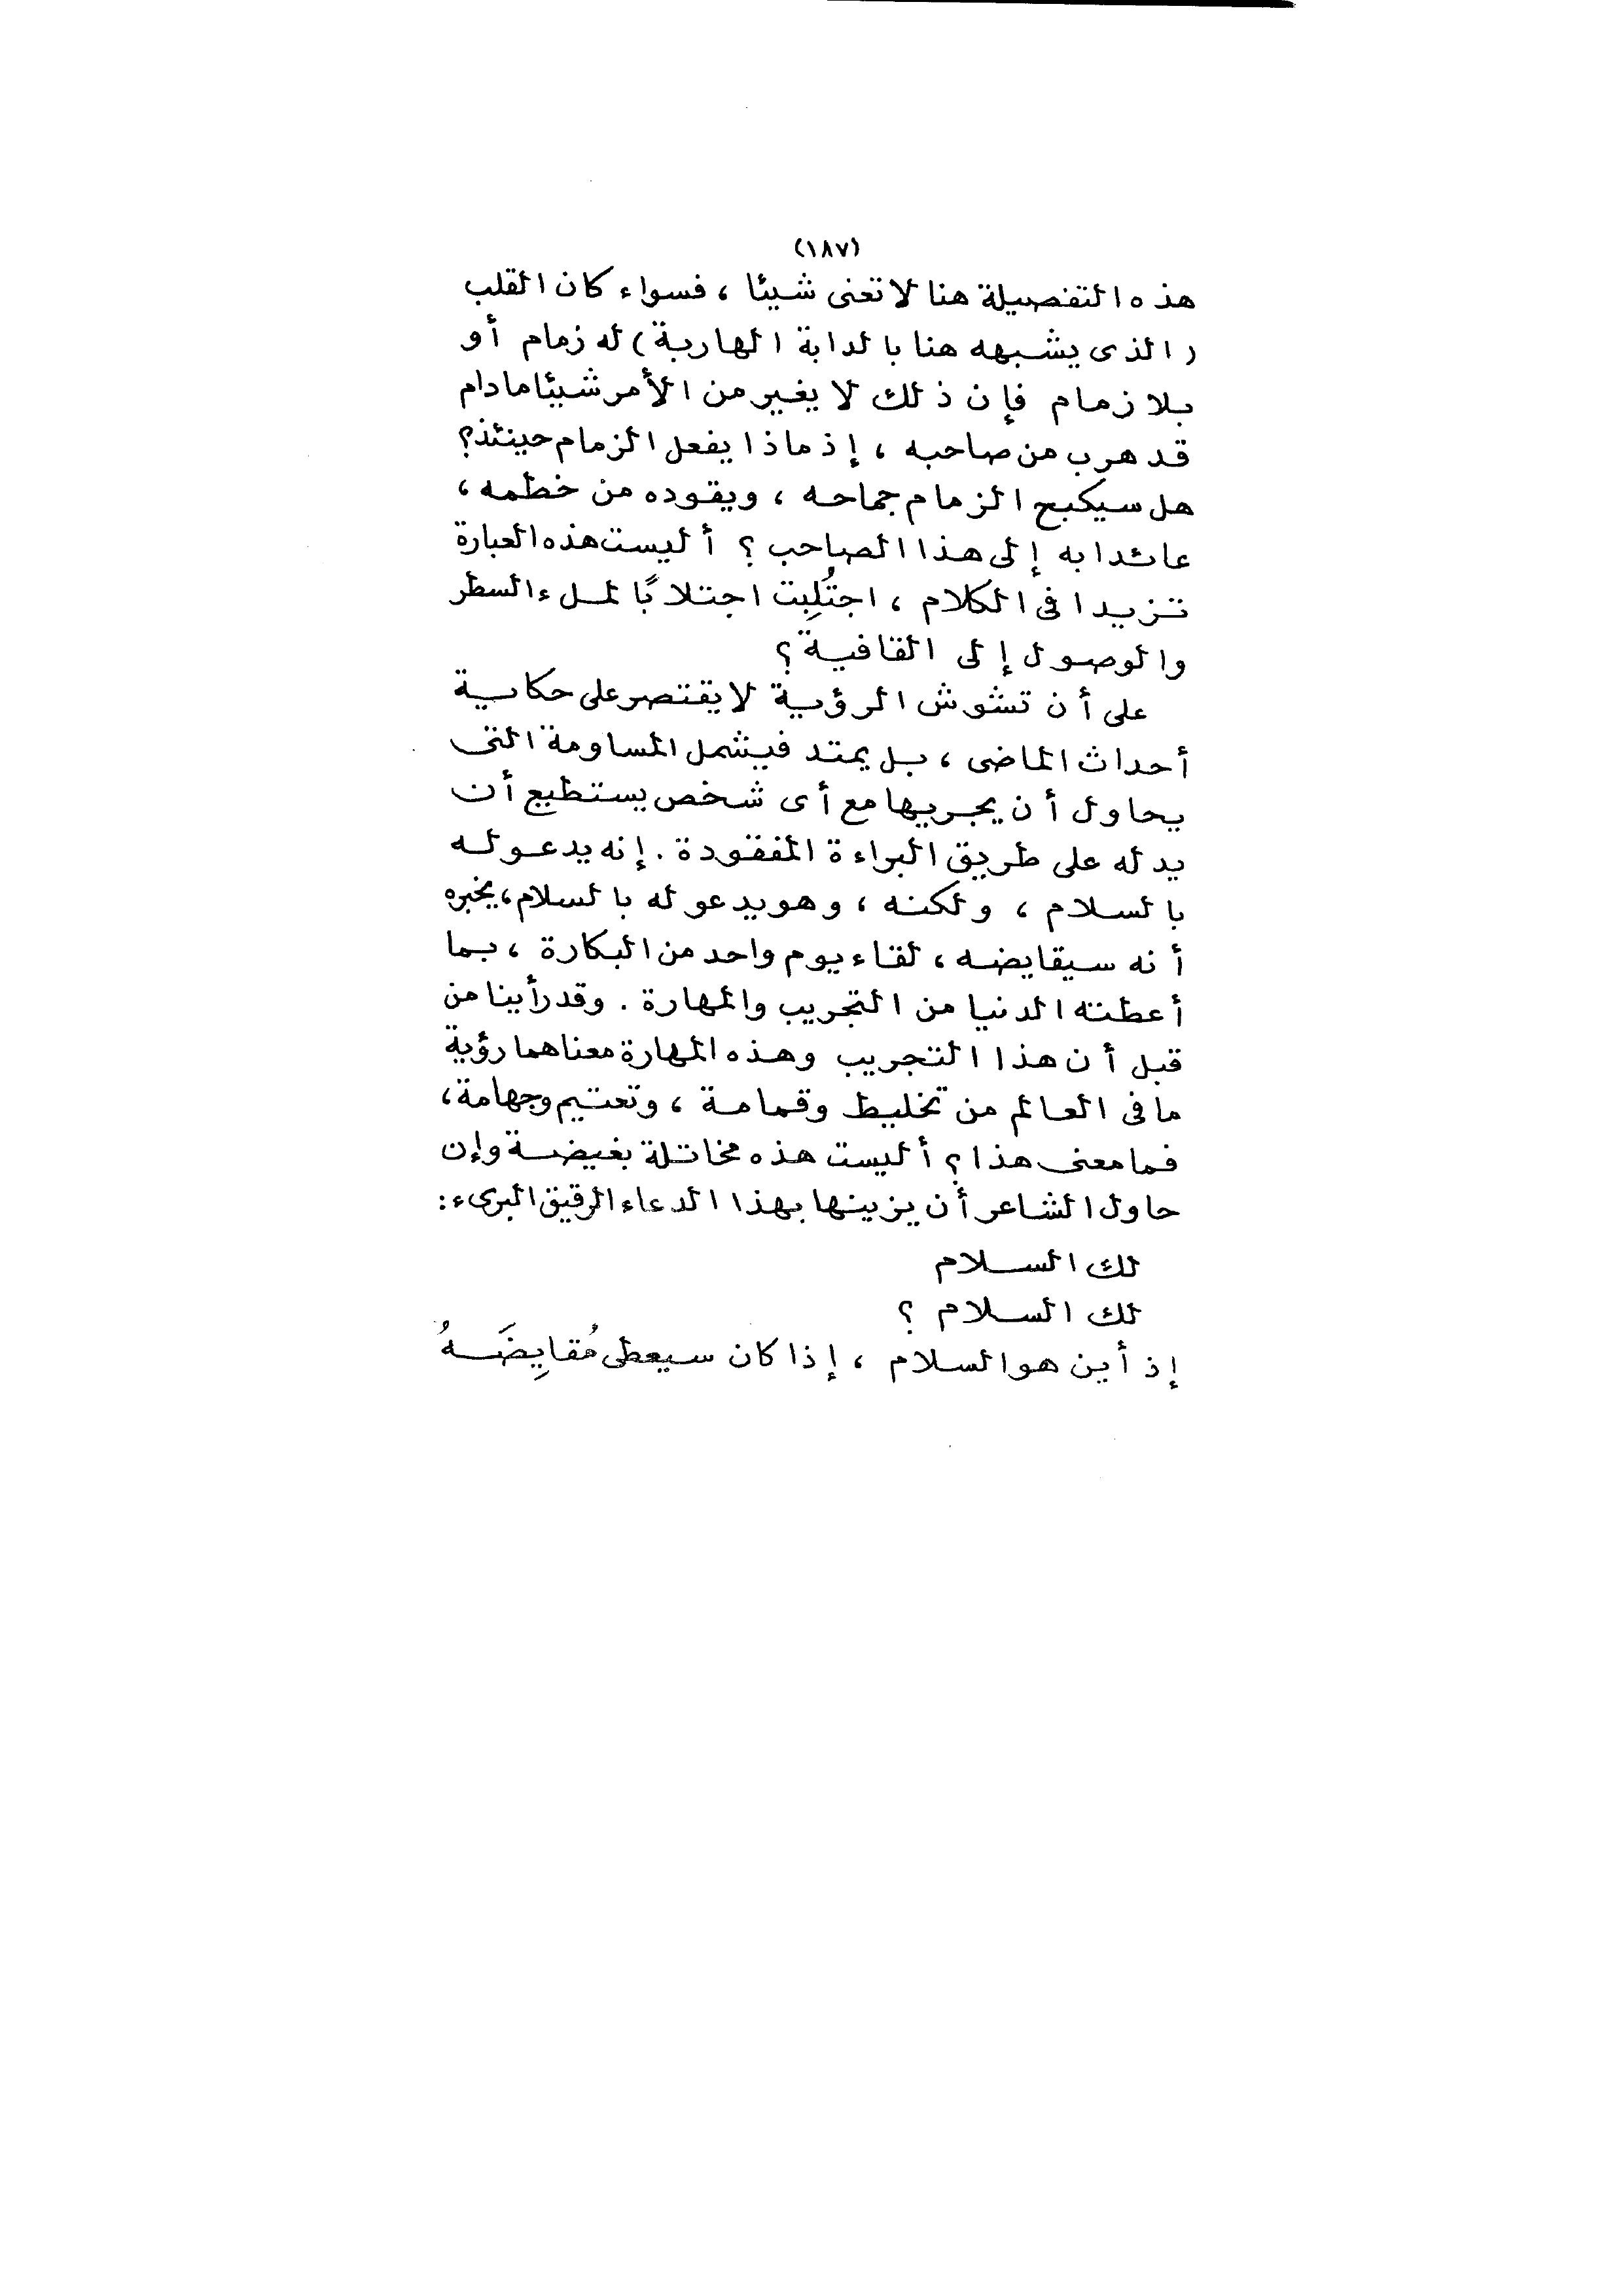 (١٨٧)
هذه التفصيلة هنا لا تعنى شيئا ، فسواء كان القلب
( الذى يشبهه هنا بالدابة الهاربة ) له زمام أو
بلا زمام فإن ذلك لا يغير من الأمر شيئا مادام
قد هرب من صاحبه ، إذ ماذا يفعل الزمام حينئذ ؟
هل سيكبح الزمام جماحه ، ويقوده من خطمه ،
عائدا به إلى هذا الصاحب ؟ أليست هذه العبارة
تزيدا فى الكلام ، اجتُلِبت اجتلابًا لملء السطر
والوصول إلى القافية ؟
على أن تشوش الرؤية لا يقتصر على حكاية
أحداث الماضى ، بل يمتد فيشمل المساومة التى
يحاول أن يجريها مع أى شخص يستطيع أن
يدله على طريق البراءة المفقودة . إنه يدعو له
بالسلام ، ولكنه ، وهو يدعو له بالسلام ، يخبره
أنه سيقايضه ، لقاء يوم واحد من البكارة ، بما
أعطته الدنيا من التجريب والمهارة . وقد رأينا من
قبل أن هذا التجريب وهذه المهارة معناهما رؤية
ما فى العالم من تخليط وقمامة ، وتعتيم وجهامة ،
فما معنى هذا ؟ أليست هذه مخاتلة بغيضة وإن
حاول الشاعر أن يزينها بهذا الدعاء الرقيق البرىء :
لك السلام
لك السلام ؟
إذ أين هو السلام ، إذا كان سيعطى مُقايِضَهُ